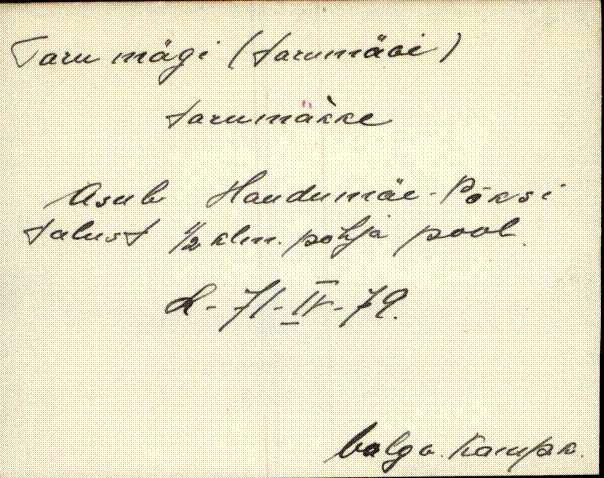 Taru mägi (tarumäoi)
tarumäkke
Asub Haudumäe-Põksi
talust 1/2 klm. põhja pool.
L-71-IV-79.
Valga. Kaupk.